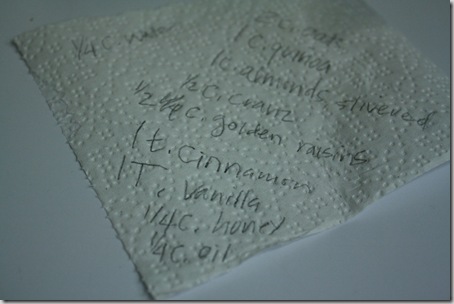 1/4 c. water
c. oats
1 c. quinoa
1 c. almonds, slivered
1/2 c. cranz
1/2 c. golden raisins
1 t. cinnamon
1 T. vanilla
1/4 c. honey
1/4 c. oil